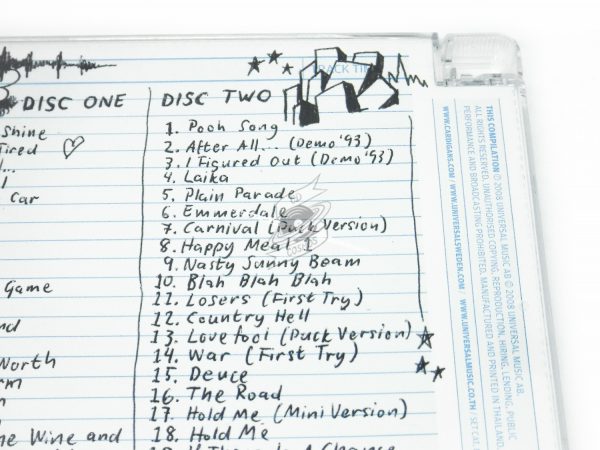 TRACK TI
DISC ONE
Shine
Tired
...
l
Car
Game
nd
Worth
rm
n
he Wine and
DISC TWO
1. Pooh Song
2. After All... (Demo '93)
3. I Figured Out (Demo '93)
4. Laika
5. Plain Parade
6. Emmerdale
7. Carnival (Puck Version)
8. Happy Meal I
9. Nasty Sunny Beam
10. Blah Blah Blah
11. Losers (First Try)
12. Country Hell
13. Lovefool (Puck Version)
14. War (First Try)
15. Deuce
16. The Road
17. Hold Me (Mini Version)
18. Hold Me
19. If There Is A Chance
THIS COMPILATION ℗ 2008 UNIVERSAL MUSIC AB © 2008 UNIVERSAL MUSIC AB.
ALL RIGHTS RESERVED. UNAUTHORISED COPYING, REPRODUCTION, HIRING, LENDING, PUBLIC
PERFORMANCE AND BROADCASTING PROHIBITED. MANUFACTURED AND PRINTED IN THAILAND
WWW.CARDIGANS.COM / WWW.UNIVERSALSWEDEN.COM WWW.UNIVERSALMUSIC.CO.TH / SET CAT.